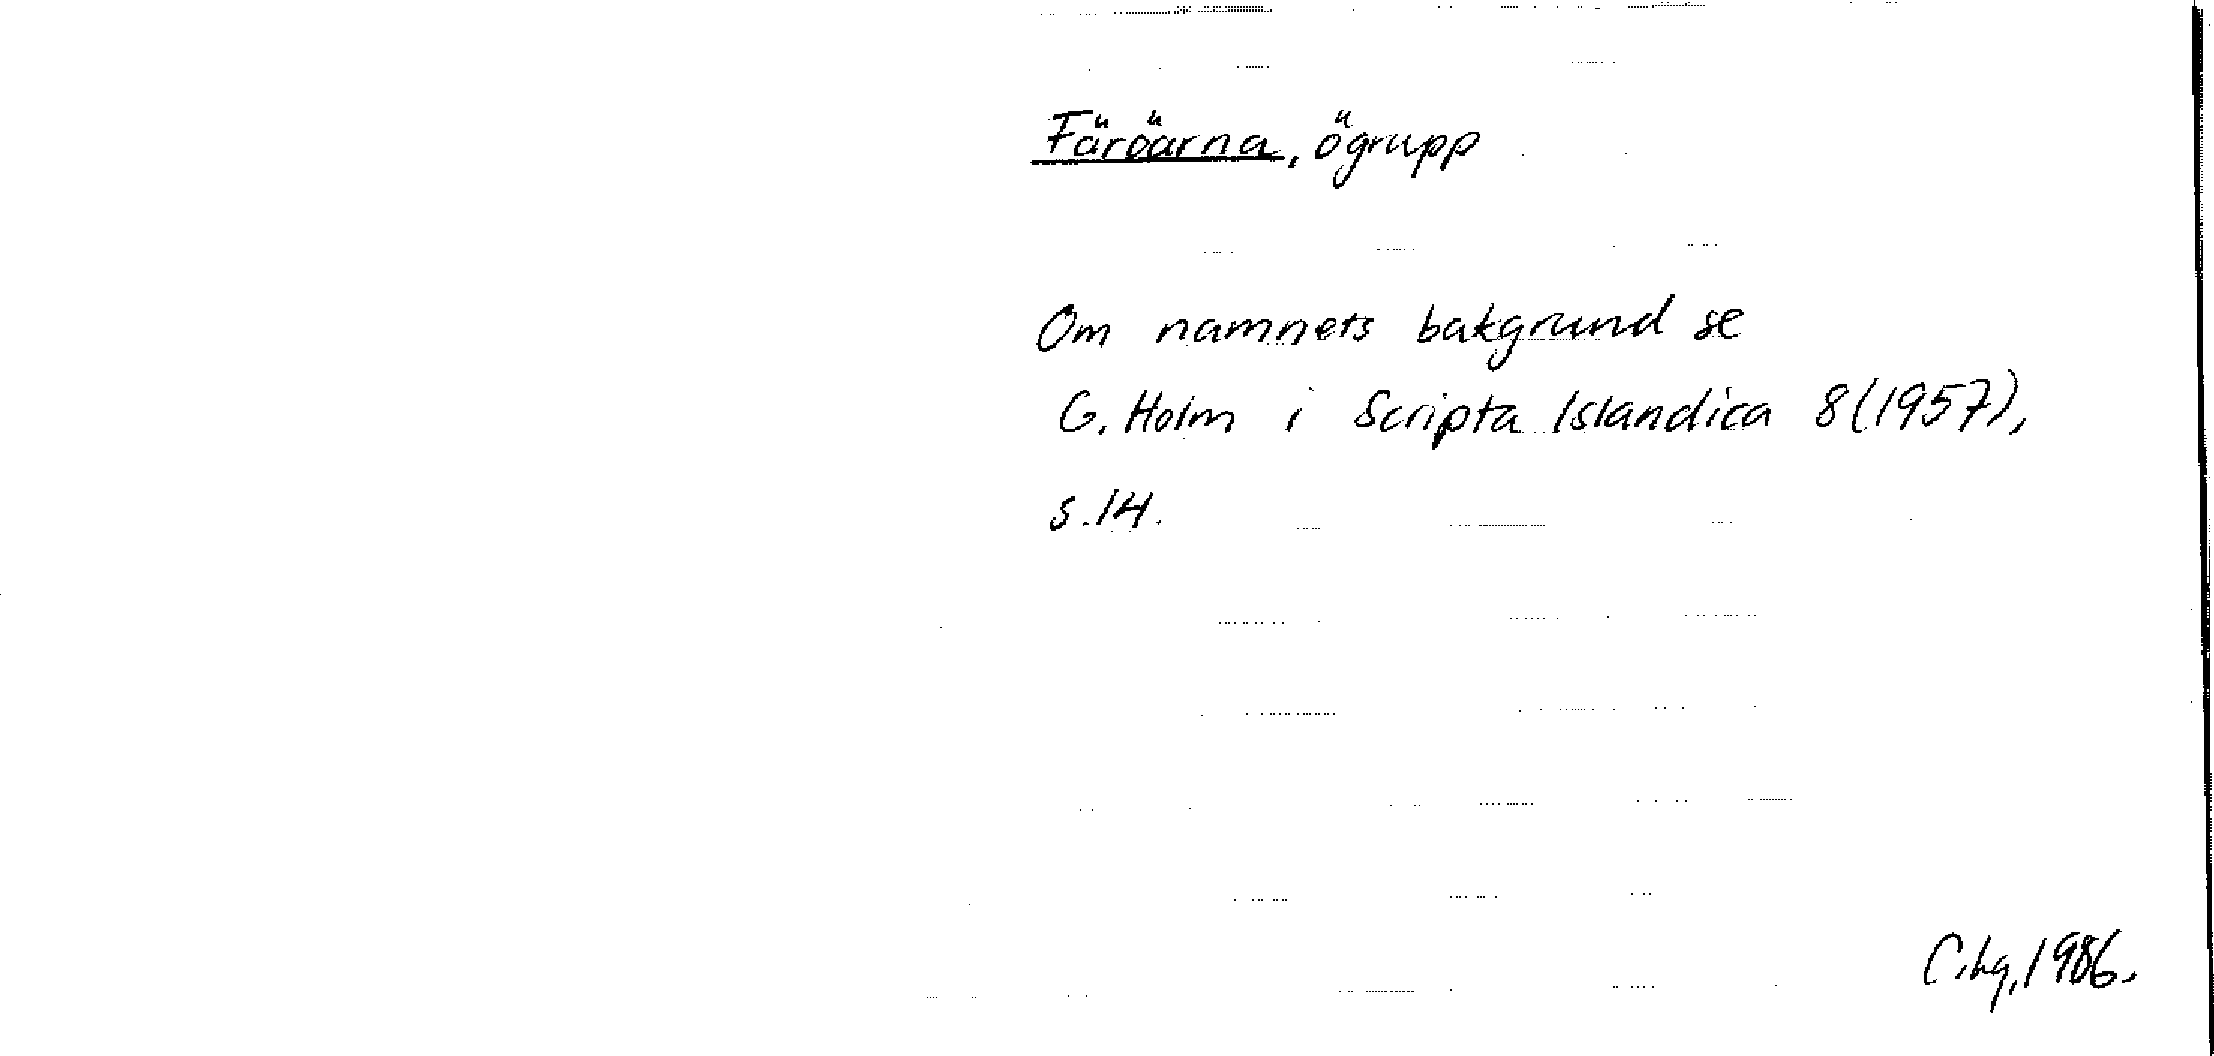 Färöarna, ögrupp
Om namnets bakgrund se
G. Holm i Scripta Islandica 8(1957),
s.14.
1986.